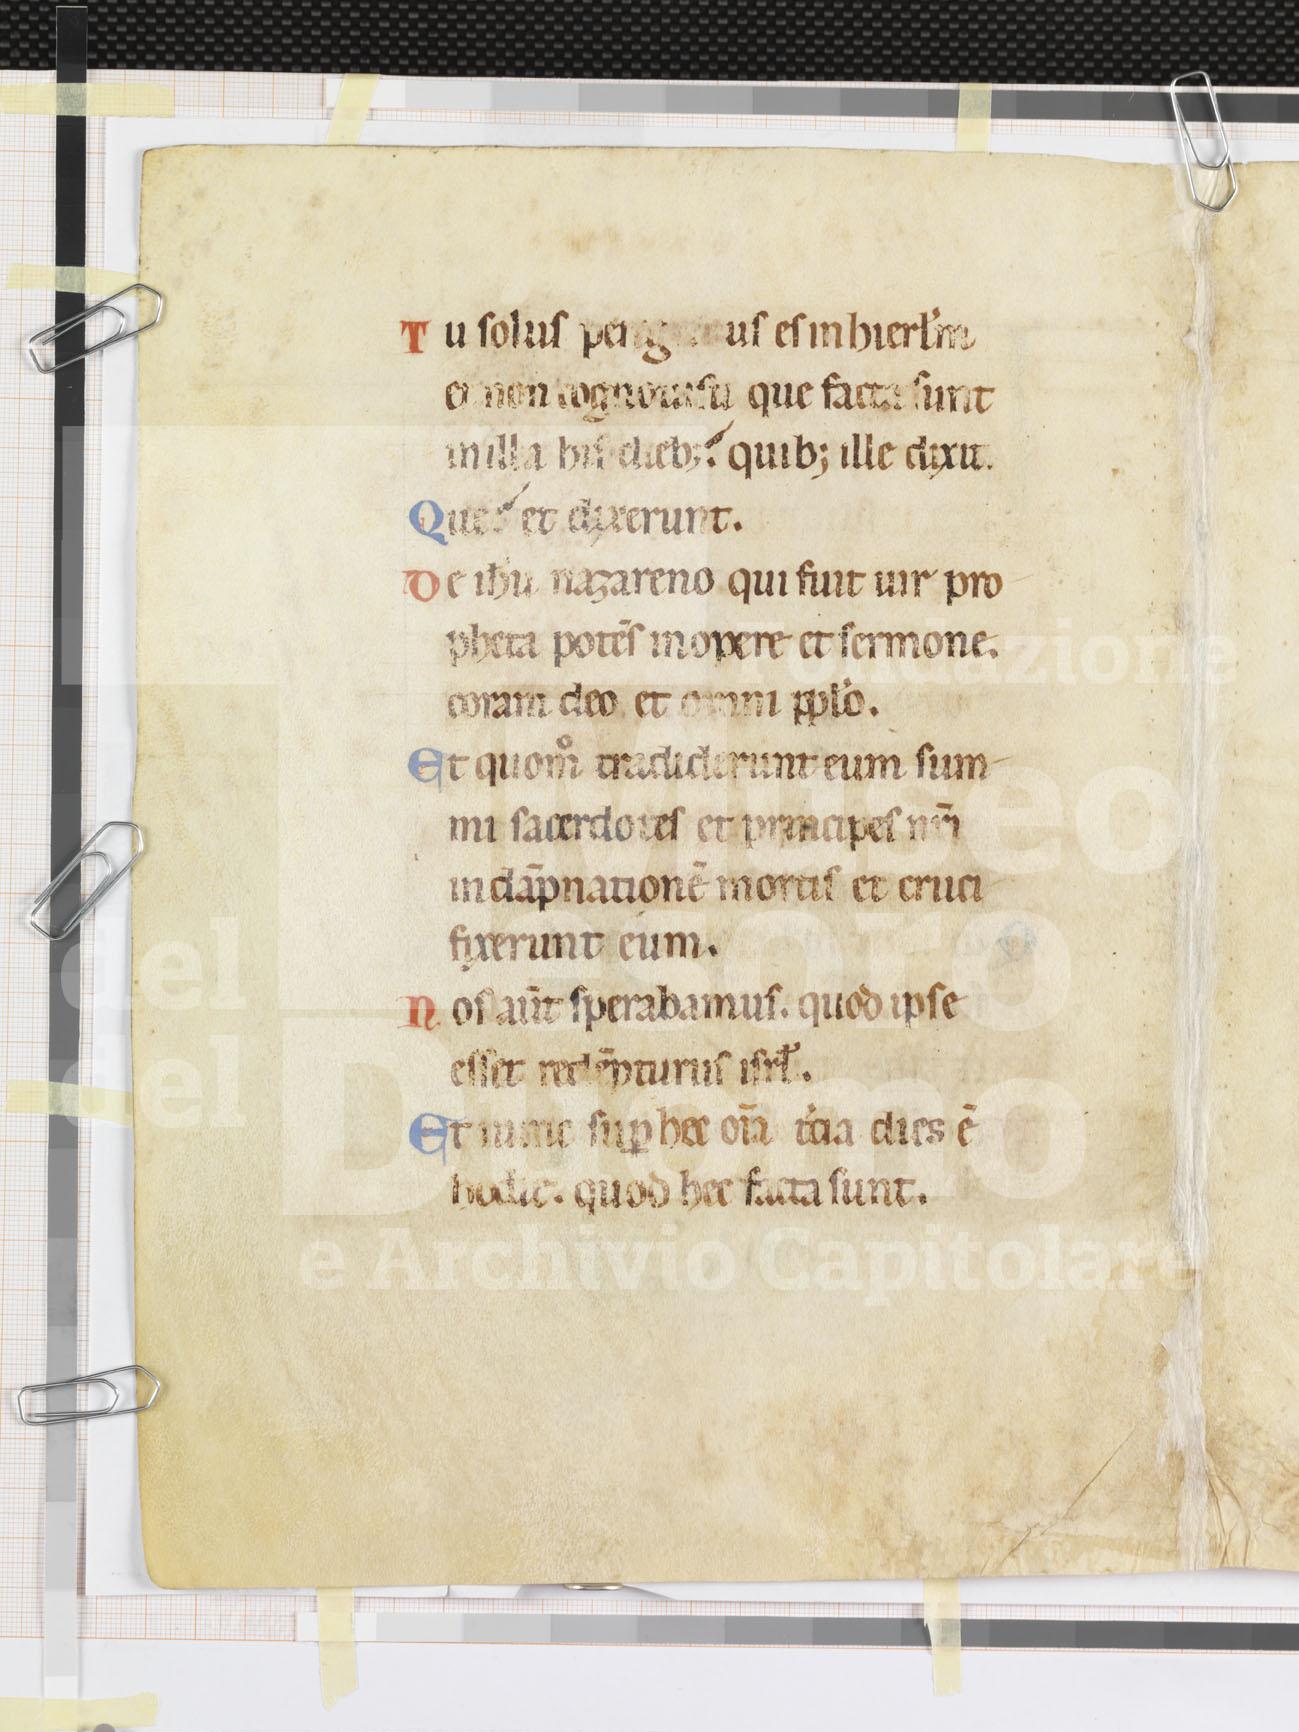 Tu solus peregrinus es in hierl'm
et non cognouisti que facta sunt
in illa his dieb; quib; ille dixit.
Que? et dixerunt.
De ihu nazareno qui fuit uir pro
pheta potēs in opere et sermone.
coram deo et omni ppl'o.
Et quom̊ tradiderunt eum sum
mi sacerdotes et principes nr̄i
in dāpnationē mortis et cruci
fixerunt eum.
Nos aūt sperabamus. quod ipse
esset redēpturus isrl'.
Et nunc sup hec oīa t'cia dies ē
hodie. quod hec facta sunt.
Fondazione
Museo
del Duomo
e Archivio Capitolare